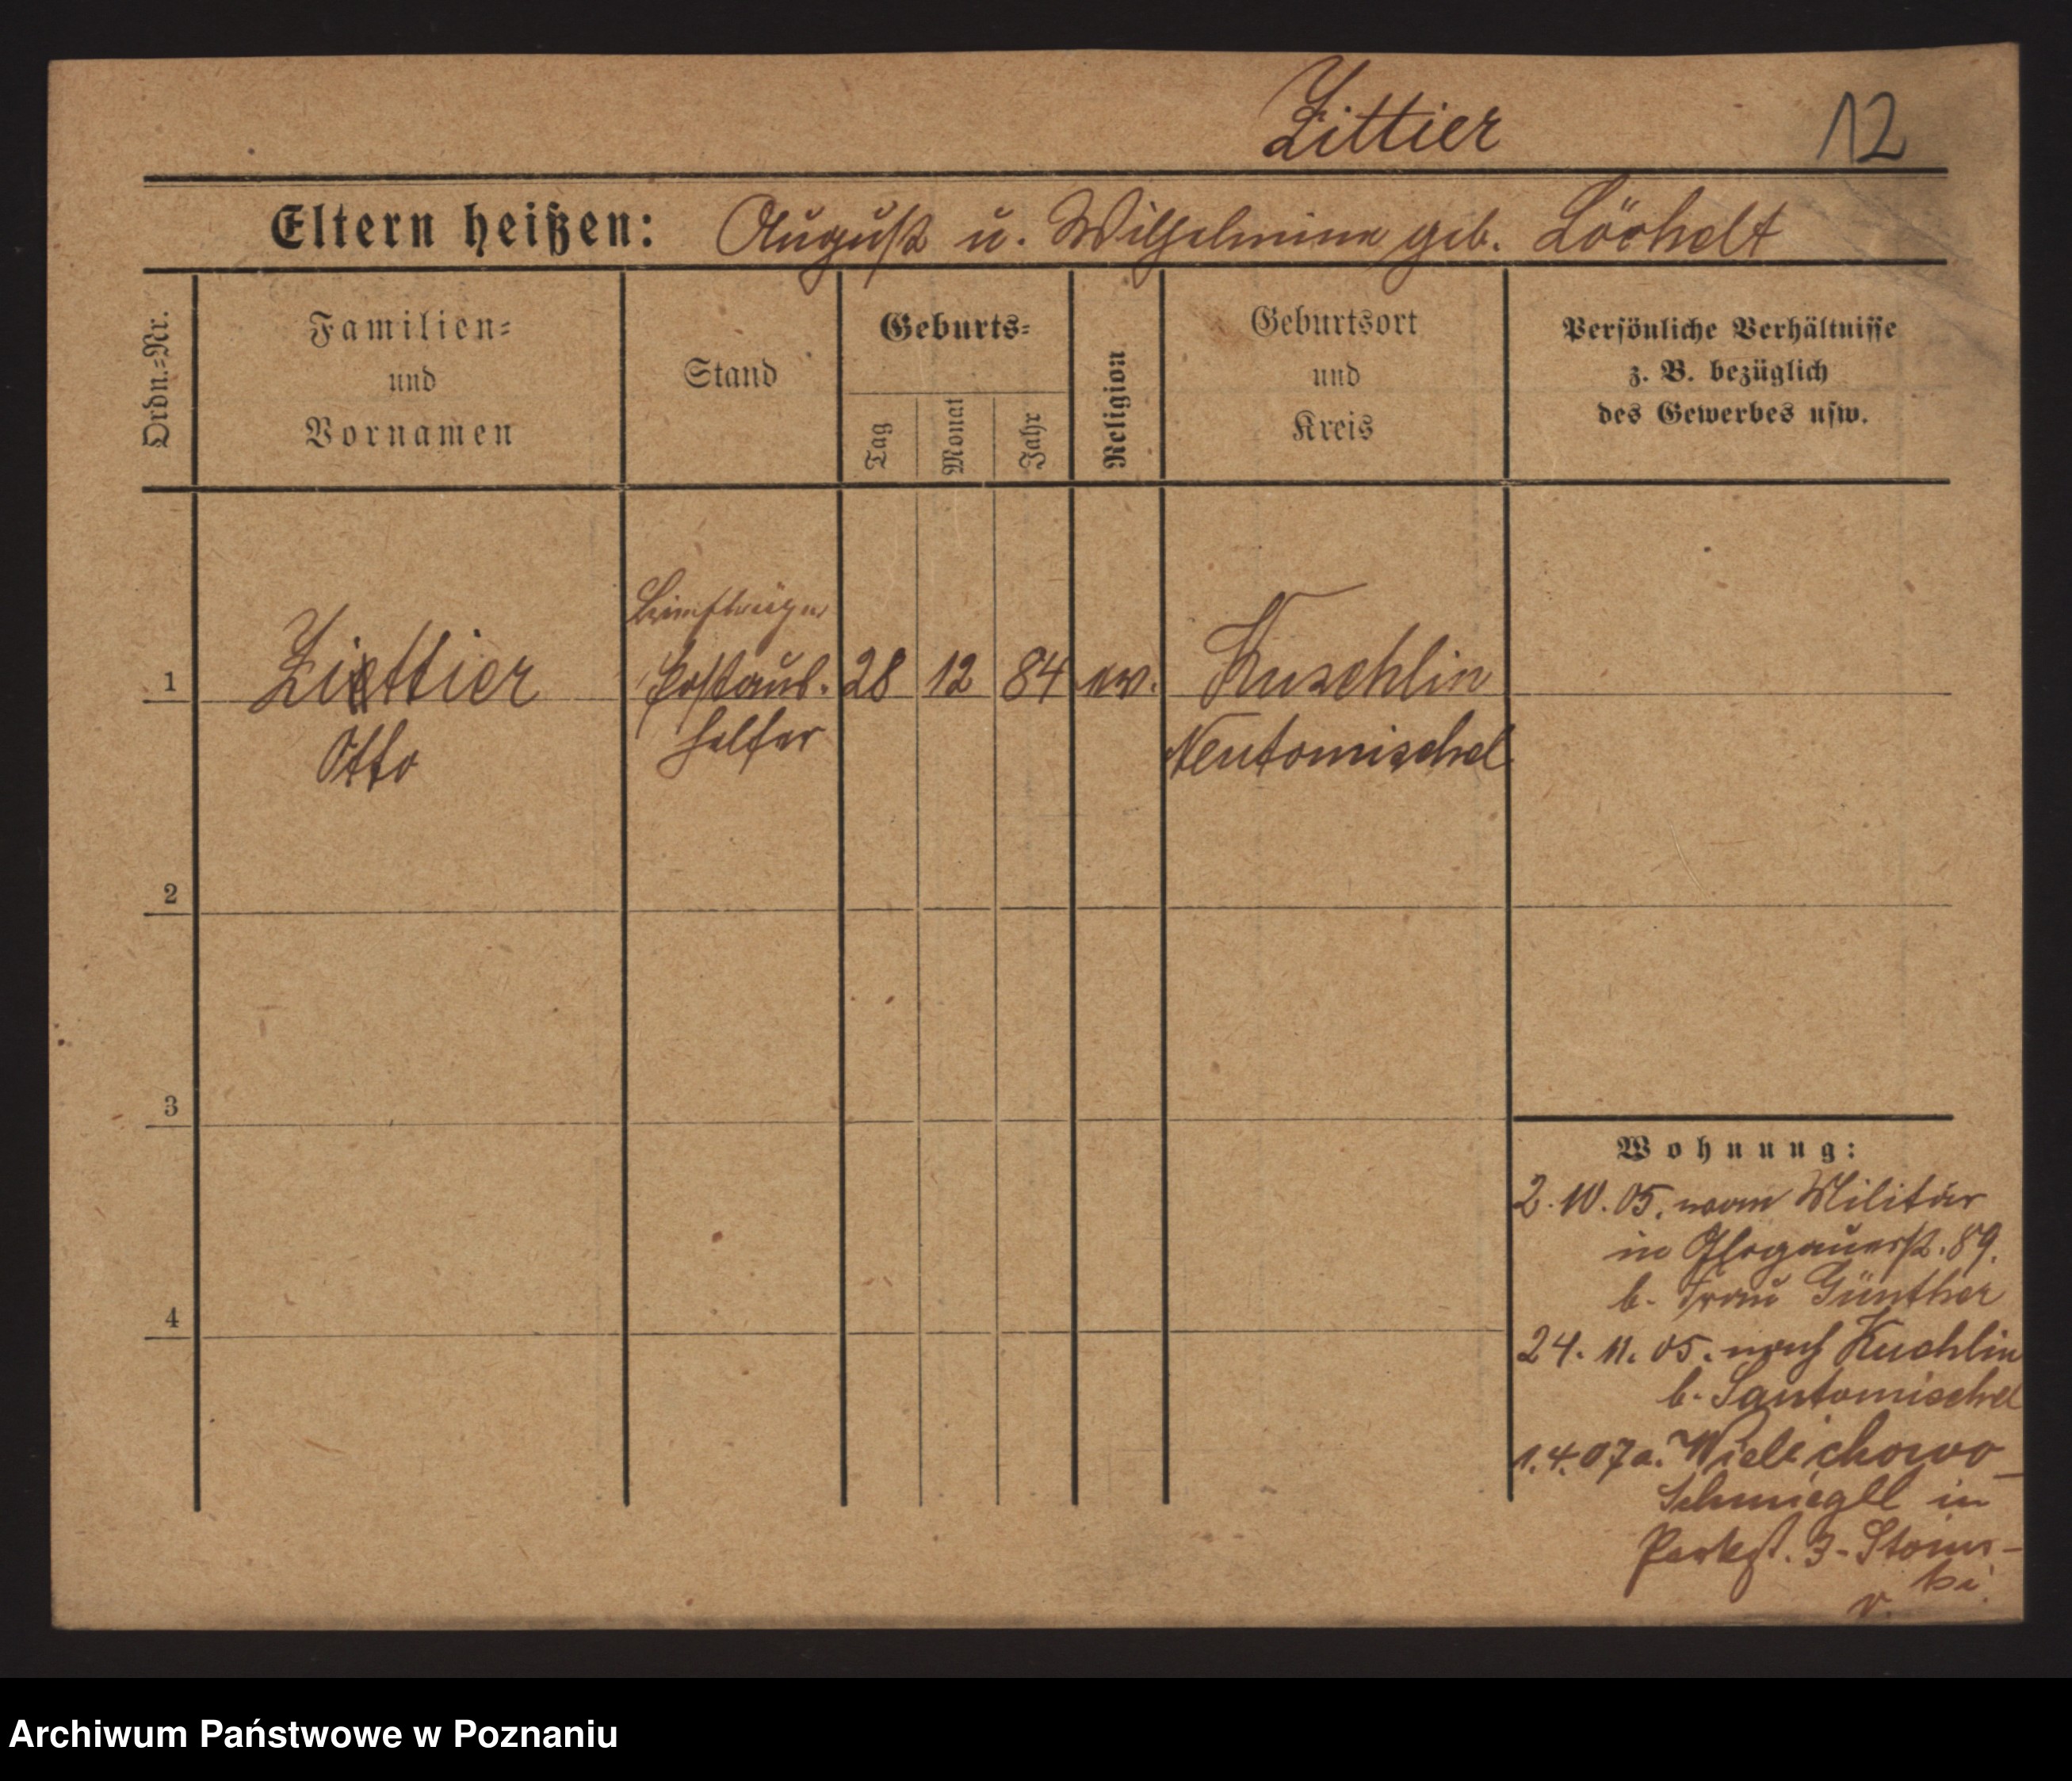 Zittier
12
Eltern heißen: August u. Wilhelmine geb. Löchelt
Ordn.=Nr.
Familien=
und
Vornamen
Stand
Geburts=
Tag
Monat
Jahr
Religion
Geburtsort
und
Kreis
Persönliche Verhältnisse
z. B. bezüglich
des Gewerbes usw.
1
Zittier
Otto
Briefträger
Postaus.
helfer
28
12
84
ev.
Kuschlin
Neutomischel
2
3
4
Wohnung:
2.10.05. vom Militär
in Glogauerst. 89.
b. Frau Günther
24. 11. 05. nach Kuchlin
b. Santomischel
1.4.07 a. Wielichowo
Schmiegel in
Parkst. 3
v.
Archiwum Państwowe w Poznaniu